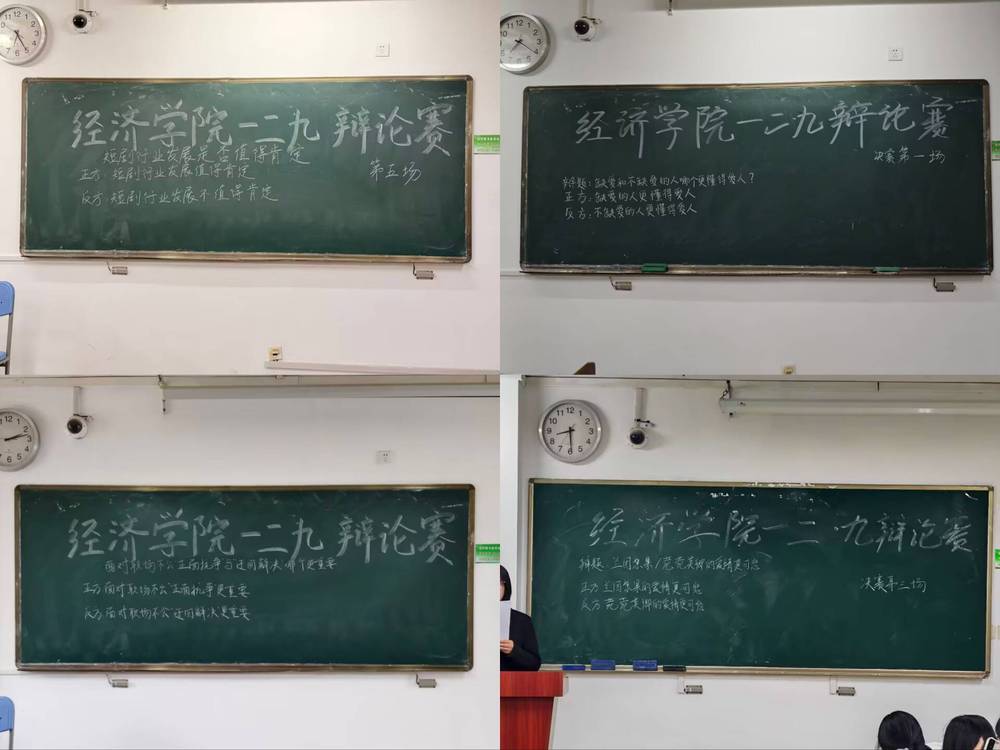 经济学院一二九 辩论赛
短剧行业发展是否值得肯定
正方：短剧行业发展值得肯定
第五场
反方：短剧行业发展不值得肯定
经济学院一二九辩论赛
决赛第一场
辩题：缺爱和不缺爱的人哪个更懂得爱人？
正方：缺爱的人更懂得爱人
反方：不缺爱的人更懂得爱人
经济学院一二九 辩论赛
面对职场不公正面抗争与迂回解决哪个更重要
正方 面对职场不公正面抗争更重要
反方 面对职场不公迂回解决更重要
经济学院一二·九辩论赛
辩题：兰因絮果/菀菀类卿的爱情更可悲
正方 兰因絮果的爱情更可悲
决赛第三场
反方 菀菀类卿的爱情更可悲